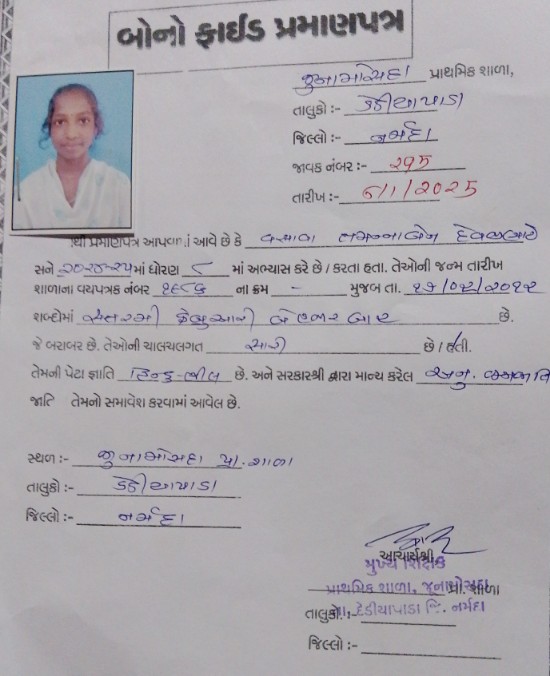 બોનો ફાઈડ પ્રમાણપત્ર
જુનામોસદા પ્રાથમિક શાળા,
તાલુકો :- ડેડીયાપાડા
જિલ્લો :- નર્મદા
જાવક નંબર :- ૨૧૫
તારીખ :- 6/1/2025
આથી પ્રમાણપત્ર આપવામાં આવે છે કે વસાવા તમન્નાબેન દેવજીભાઈ
સને ૨૦૨૪-૨૫માં ધોરણ ૮ માં અભ્યાસ કરે છે / કરતા હતા. તેઓની જન્મ તારીખ
શાળાના વયપત્રક નંબર ૧૯૮૬ ના ક્રમ - મુજબ તા. ૧૭/૦૨/૨૦૧૨
શબ્દોમાં સત્તરમી ફેબ્રુઆરી બે હજાર બાર છે.
જે બરાબર છે. તેઓની ચાલચલગત સારી છે / હતી.
તેમની પેટા જ્ઞાતિ હિન્દુ-ભીલ છે. અને સરકારશ્રી દ્વારા માન્ય કરેલ અનુ. જનજાતિ
જાતિ તેમનો સમાવેશ કરવામાં આવેલ છે.
સ્થળ :- જુનામોસદા પ્રા. શાળા
તાલુકો :- ડેડીયાપાડા
જિલ્લો :- નર્મદા
આચાર્યશ્રી
મુખ્ય શિક્ષક
પ્રાથમિક શાળા, જૂનામોસદા
પ્રા. શાળા
તાલુકો :-
તા. દેડીયાપાડા જિ. નર્મદા
જિલ્લો :-